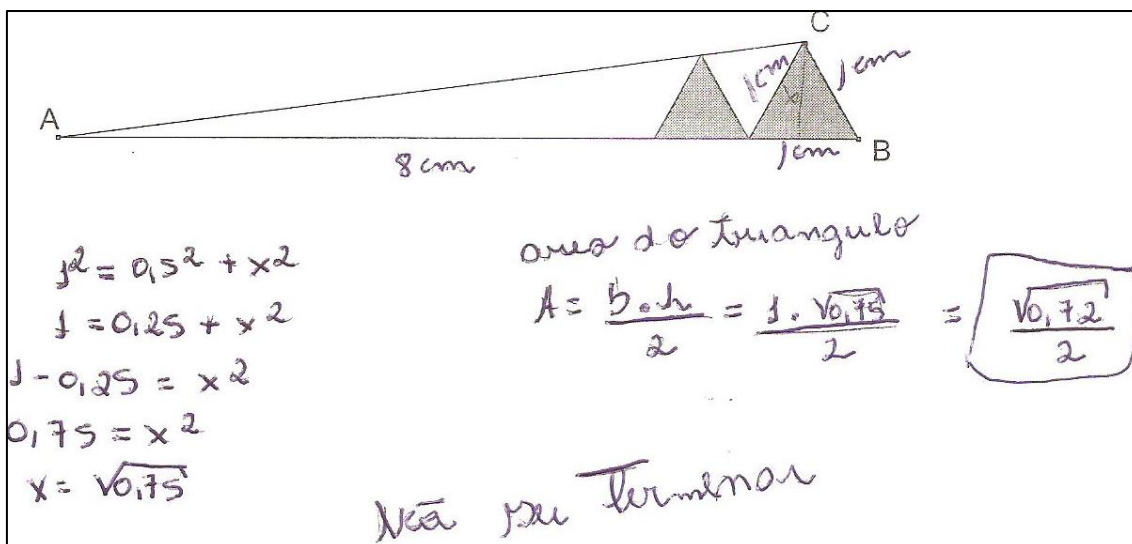 C
1cm
1cm
x
A
8cm
1cm
B
1² = 0,5² + x²
1 = 0,25 + x²
1 - 0,25 = x²
0,75 = x²
x = √0,75
area do triangulo
A = b.h/2 = 1.√0,75/2 = √0,72/2
Terminar